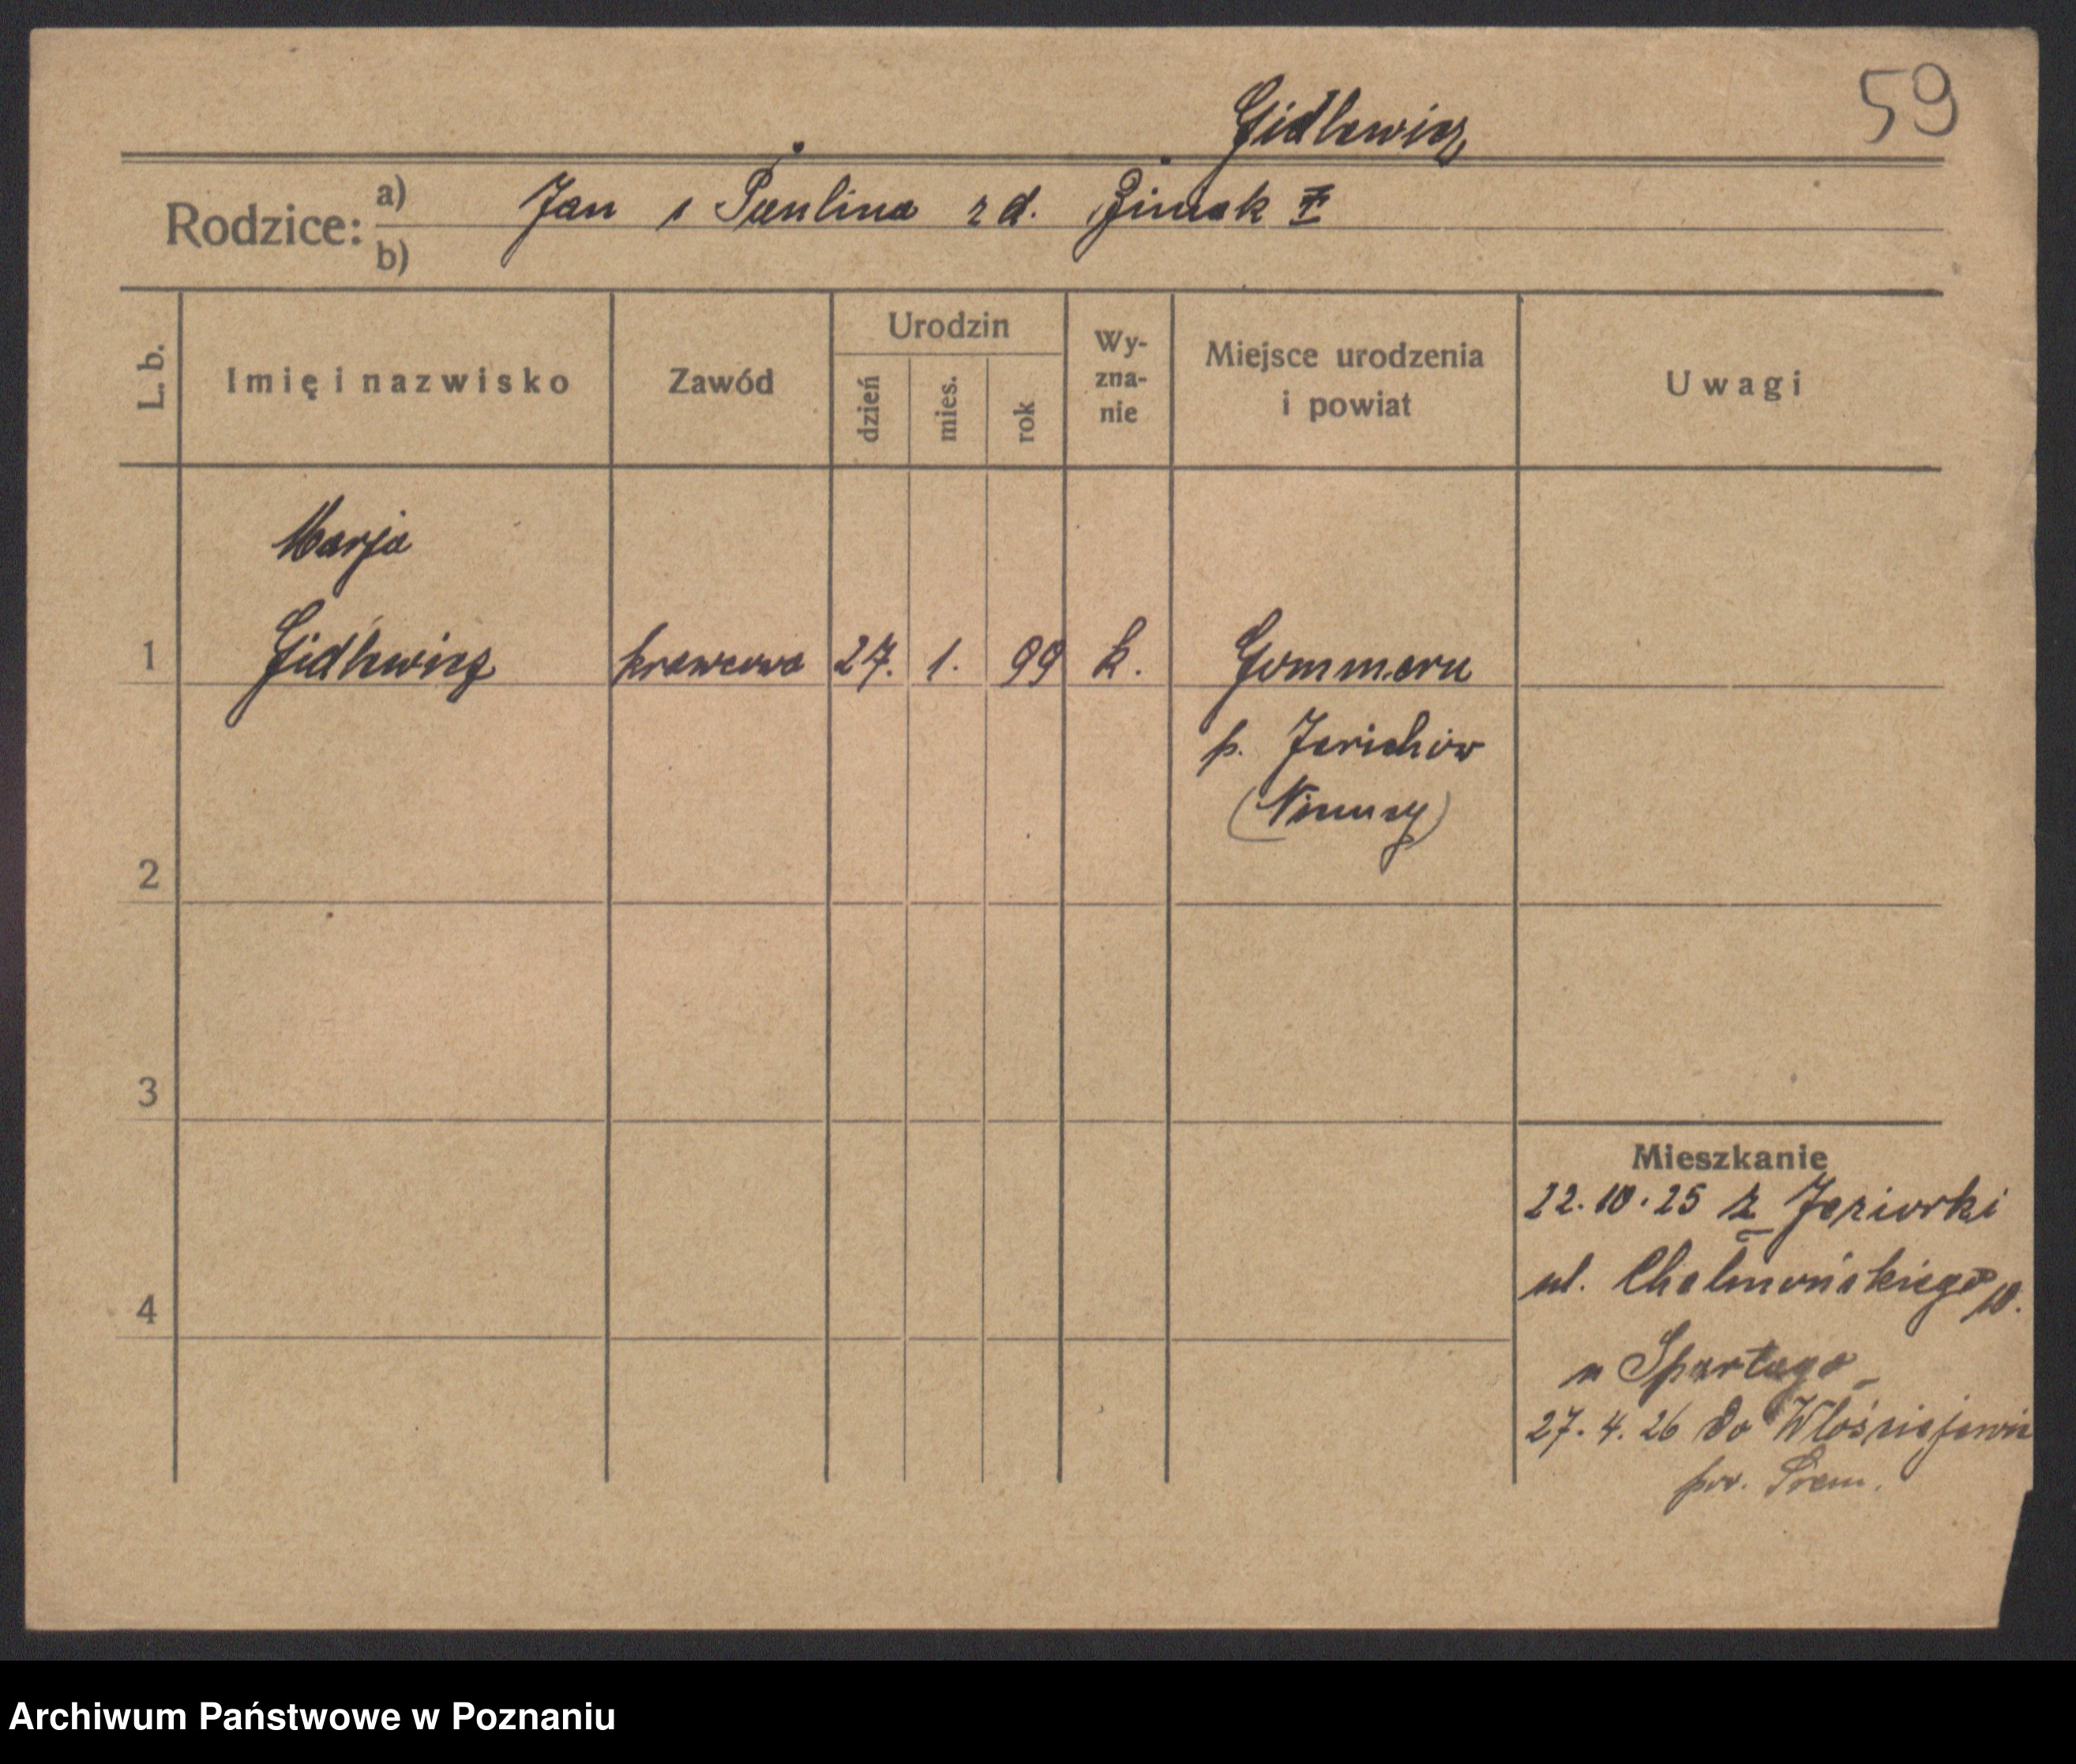 59
Gidlewicz
Rodzice: a) Jan i Paulina z d. Zimak
b)
L. b.
Imię i nazwisko
Zawód
Urodzin
dzień
mies.
rok
Wy-
zna-
nie
Miejsce urodzenia
i powiat
Uwagi
Marja
1 Gidlewicz krawcowa 27. 1. 99 k. Gommern
p. Jerichow
(Niemcy)
2
3
4
Mieszkanie
22.10.25 z Jeziorki
ul. Chełmońskiego 10.
u
27.4.26 do Włościejewic
pow. Śrem.
Archiwum Państwowe w Poznaniu